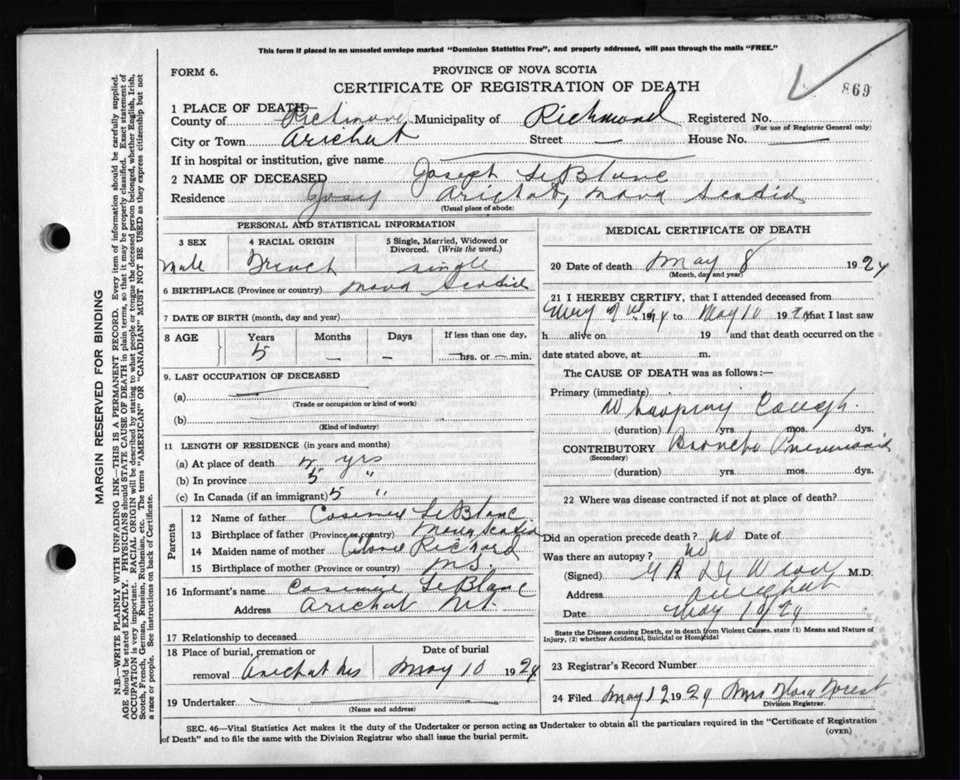 This form if placed in an unsealed envelope marked "Dominion Statistics Free", and properly addressed, will pass through the mails "FREE."
FORM 6.
PROVINCE OF NOVA SCOTIA
CERTIFICATE OF REGISTRATION OF DEATH
869
1 PLACE OF DEATH
County of Richmond Municipality of Richmond Registered No.
(For use of Registrar General only)
City or Town Arichat Street — House No. —
If in hospital or institution, give name
2 NAME OF DECEASED Joseph LeBlanc
Residence Arichat, Nova Scotia
(Usual place of abode)
PERSONAL AND STATISTICAL INFORMATION
3 SEX 4 RACIAL ORIGIN 5 Single, Married, Widowed or Divorced. (Write the word.)
Male French single
6 BIRTHPLACE (Province or country) Nova Scotia
7 DATE OF BIRTH (month, day and year)
8 AGE Years Months Days If less than one day,
5 — — —hrs. or —min.
9. LAST OCCUPATION OF DECEASED
(a) —
(Trade or occupation or kind of work)
(b)
(Kind of industry)
11 LENGTH OF RESIDENCE (in years and months)
(a) At place of death 5 yrs
(b) In province 5 "
(c) In Canada (if an immigrant) 5 "
Parents
12 Name of father LeBlanc
13 Birthplace of father (Province or country) Nova Scotia
14 Maiden name of mother Richard
15 Birthplace of mother (Province or country) N.S.
16 Informant's name LeBlanc
Address Arichat
17 Relationship to deceased
18 Place of burial, cremation or removal Arichat NS
Date of burial May 10 1924
19 Undertaker
(Name and address)
MEDICAL CERTIFICATE OF DEATH
20 Date of death May 8 1924
(Month, day and year)
21 I HEREBY CERTIFY, that I attended deceased from
May 1924 to May 10 1924 that I last saw
h alive on 19 and that death occurred on the
date stated above, at m.
The CAUSE OF DEATH was as follows:—
Primary (immediate)
Whooping Cough.
(duration) yrs. mos. dys.
CONTRIBUTORY Broncho Pneumonia
(Secondary)
(duration) yrs. mos. dys.
22 Where was disease contracted if not at place of death?
Did an operation precede death? no Date of
Was there an autopsy? no
(Signed) M.D.
Address Arichat
Date May 10/24
State the Disease causing Death, or in death from Violent Causes, state (1) Means and Nature of Injury, (2) whether Accidental, Suicidal or Homicidal
23 Registrar's Record Number
24 Filed May 12 1924 Mrs Forest
Division Registrar.
SEC. 46—Vital Statistics Act makes it the duty of the Undertaker or person acting as Undertaker to obtain all the particulars required in the "Certificate of Registration
of Death" and to file the same with the Division Registrar who shall issue the burial permit.
(OVER)
MARGIN RESERVED FOR BINDING
N.B.—WRITE PLAINLY WITH UNFADING INK—THIS IS A PERMANENT RECORD. Every item of information should be carefully supplied.
AGE should be stated EXACTLY. PHYSICIANS should STATE CAUSE OF DEATH in plain terms, so that it may be properly classified. Exact statement of
OCCUPATION is very important. RACIAL ORIGIN will be described by stating to what people or tongue the deceased person belonged, whether English, Irish,
Scotch, French, German, Russian, Ruthenian, etc. The terms "AMERICAN" OR "CANADIAN" MUST NOT BE USED as they express citizenship but not
a race or people. See instructions on back of Certificate.